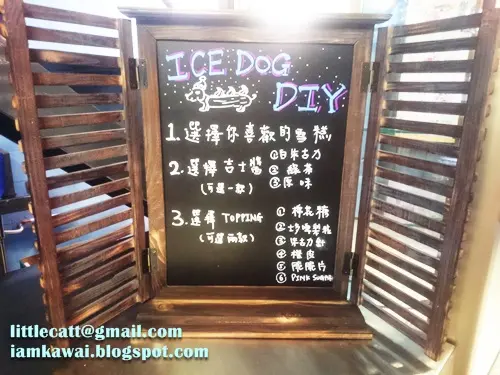 ICE DOG
DIY
1.選擇你喜歡的雪糕
2.選擇吉士醬
(可選一款)
①白朱古力
②綠茶
③原味
3.選擇 TOPPING
(可選兩款)
①棉花糖
②士多啤梨粒
③朱古力
④橙皮
⑤脆片
⑥PINK SUGAR
littlecatt@gmail.com
iamkawai.blogspot.com